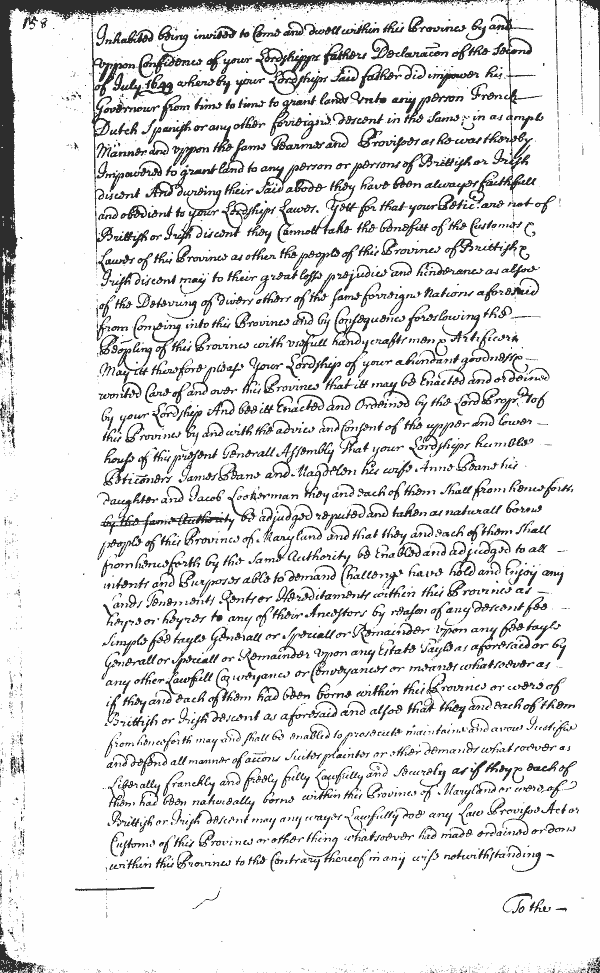 158
Inhabited being invited to Come and dwell within this Province by and
vppon Confidence of your Lordshipps fathers Declaracon of the Second
of July 1649 whereby your Lordships Said father did impower his
Governour from time to time to grant lands vnto any person French
Dutch Spanish or any other forreigne descent in the same & in as ample
Manner and vppon the same Tearmes and Provisoes as he was thereby
Impowered to grant land to any person or persons of Brittish or Irish
discent And dureing their Said abode they have been alwayes faithfull
and obedient to your Lordships Lawes. Yett for that your Peticrs. are not of
Brittish or Irish discent they Cannott take the benefitt of the Customes &
Lawes of this Province as other the people of this Province of Brittish &
Irish discent may to their great losse prejudice and hinderance as alsoe
of the Deterring of divers others of the same forreigne Nations aforesaid
from Comeing into this Province and by Consequence foreslowing the
Peopling of this Province with usefull handycraftsmen & Artificers
May itt therefore please Your Lordship of your abundant goodness &
wonted Care of and over this Province that itt may be Enacted and ordeined
by your Lordship And bee itt Enacted and Ordeined by the Lord Propr.ry of
this Province by and with the advice and Consent of the upper and lower
house of this present Generall Assembly That your Lordships humble
Peticoners James Peane and Magdelen his wife Anne Peane his
daughter and Jacob Lookerman they and each of them Shall from hence forth
by the same Authority be adjudged reputed and taken as naturall borne
people of this Province of Maryland and that they and each of them Shall
from henceforth by the Same Authority be Enabled and adjudged to all
intents and Purposes able to demand Challenge have hold and Enjoy any
Lands Tenements Rents or Hereditaments within this Province as
heyre or heyres to any of their Ancestors by reason of any descent fee
Simple fee tayle Generall or Speciall or Remainder vpon any fee tayle
Generall or Speciall or Remainder vpon any Estate Tayle as aforesaid or by
any other Lawfull Conveyance or Conveyances or meanes whatsoever as
if they and each of them had been borne within this Province or were of
Brittish or Irish descent as aforesaid and alsoe that they and each of them
from henceforth may and shall be enabled to prosecute maintaine and avow Justifie
and defend all manner of accons Suites plaintes or other demands whatsoever as
Liberally franckly and freely fully Lawfully and Securely as if they & each of
them had been naturally borne within this Province of Maryland or were of
Brittish or Irish descent may any wayes Lawfully doe any Law Provisoe Act or
Custome of this Province or other thing whatsoever had made ordained or done
within this Province to the Contrary thereof in any wise notwithstanding
To the